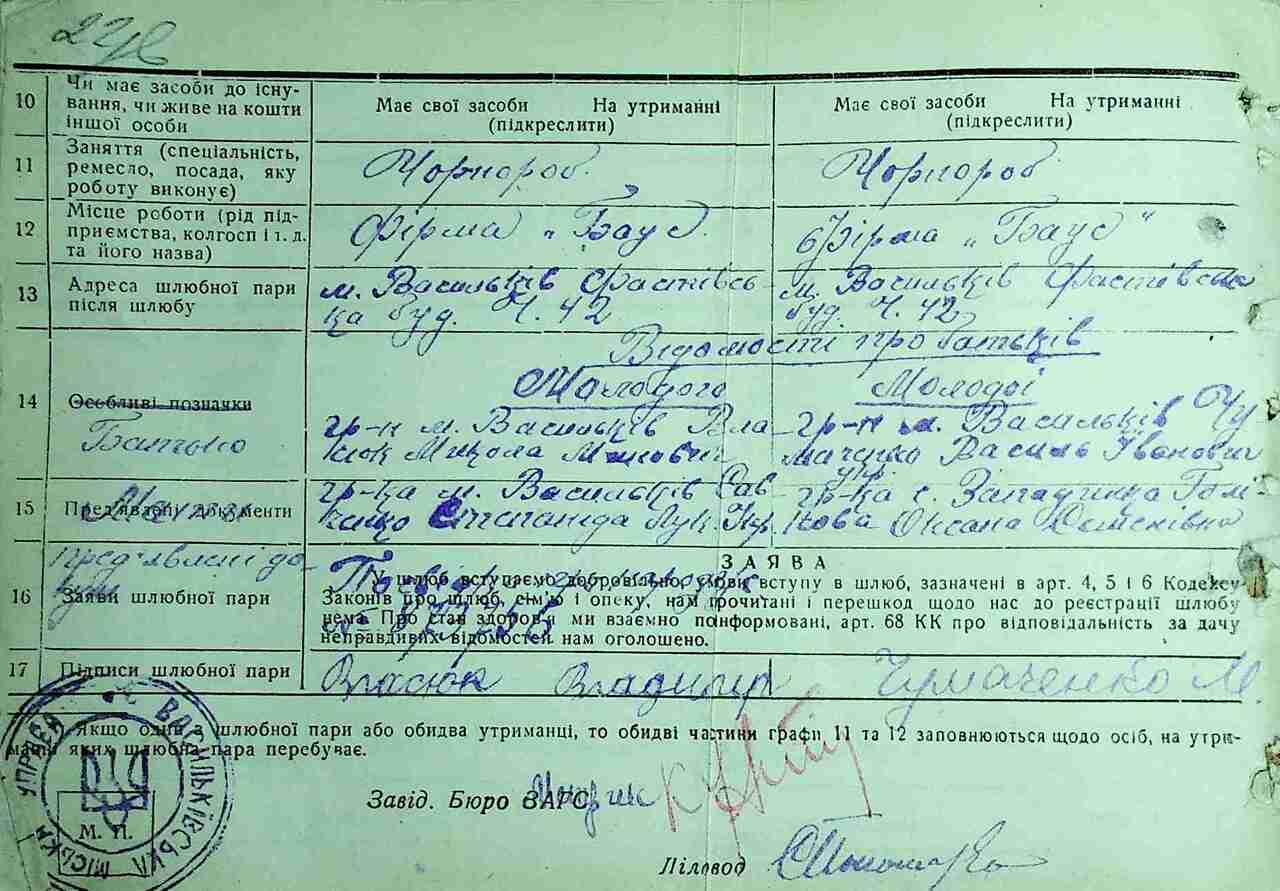 10 Чи має засоби до існу-
вання, чи живе на кошти
іншої особи
Має свої засоби На утриманні
(підкреслити)
Має свої засоби На утриманні
(підкреслити)
11 Заняття (спеціальність,
ремесло, посада, яку
роботу виконує)
Чорнороб.
Чорнороб
12 Місце роботи (рід під-
приємства, колгосп і т. д.
та його назва)
Фірма „Баус.
Фірма „Баус“
13 Адреса шлюбної пари
після шлюбу
м. Васильків Фастівсь-
ка буд. Ч. 42
м. Васильків Фастівська
буд. Ч. 42
Відомості про батьків
Молодого
Молодої
14 Особливі позначки
Батько
гр-н м. Васильків Вла-
сюк Микола
гр-н м. Васильків Чу-
маченко Василь Іванович
15 Пред'явлені документи
Мати
гр-ка м. Васильків Сав-
Лук. Укр
укр
гр-ка с. Западинка
Оксана
Пред'явлені до-
16 Заяви шлюбної пари
ЗАЯВА
У шлюб вступаємо добровільно, умови вступу в шлюб, зазначені в арт. 4, 5 і 6 Кодексу
Законів про шлюб, сім'ю і опеку, нам прочитані і перешкод щодо нас до реєстрації шлюбу
нема. Про стан здоров'я ми взаємно поінформовані, арт. 68 КК про відповідальність за дачу
неправдивих відомостей нам оголошено.
17 Підписи шлюбної пари
Власюк Владимир
Чумаченко М
Якщо один з шлюбної пари або обидва утриманці, то обидві частини графи 11 та 12 заповнюються щодо осіб, на утри-
манні яких шлюбна пара перебуває.
ВАСИЛЬКІВСЬКА МІСЬКА УПРАВА
М. П.
Завід. Бюро ЗАГС
Діловод